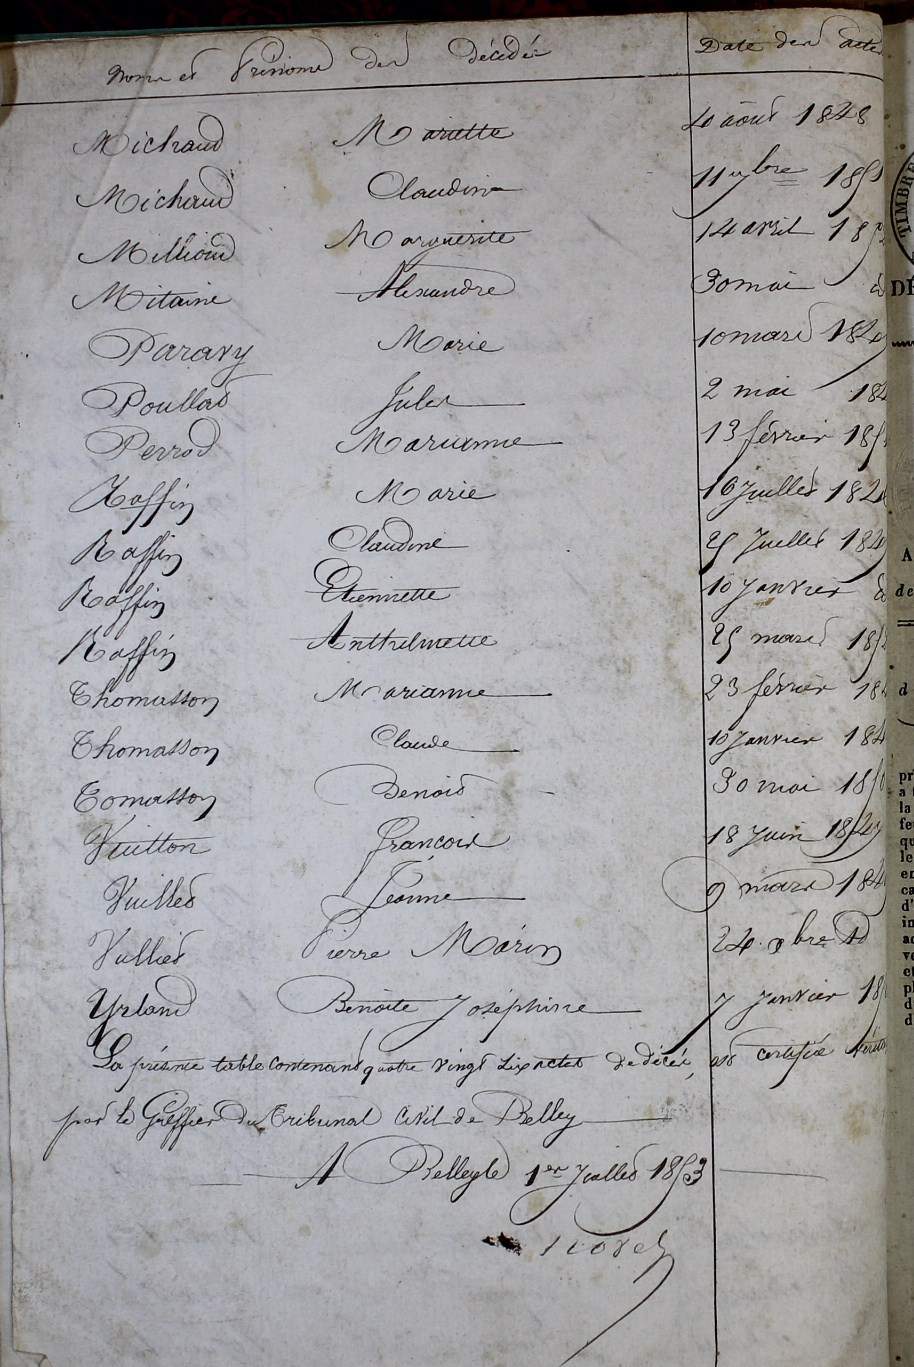 Noms et Prénoms des décédés Date des actes
Michaud Mariette 4 août 1848
Michaud Claudine 11 9bre 185
Millioud Marguerite 14 avril 185
Mitaine Alexandre 30 mai
Paravy Marie 10 mars 184
Poullet Jules 2 mai 184
Perrod Marianne 13 février 185
Raffin Marie 16 Juillet 184
Raffin Claudine 25 Juillet 184
Raffin Etiennette 10 Janvier
Raffin Anthelmette 25 mars 185
Thomasson Marianne 23 février 184
Thomasson Claude 10 Janvier 184
Tomasson Benoit 30 mai 185
Vuitton François 18 Juin 184
Vuillet Jeanne 9 mars 184
Vulliet Pierre Marin 24 9bre id
Yrland Benoite Joséphine 7 Janvier 18
La présente table contenant quatre vingt dix actes de décès, est certifiée
par le Greffier du Tribunal Civil de Belley
A Belley le 1er Juillet 1853
TIMBRE